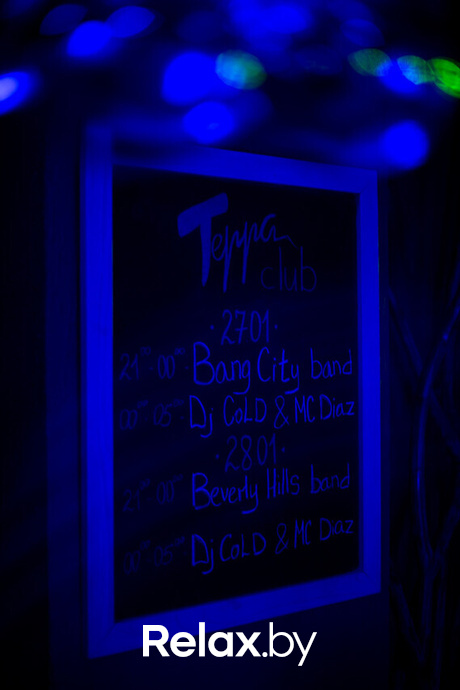 Terra club
·2701·
21⁰⁰-00⁰⁰ Bang City band
00⁰⁰-05⁰⁰ Dj COLD & MC Diaz
·2801·
21⁰⁰-00⁰⁰ Beverly Hills band
00⁰⁰-05⁰⁰ Dj COLD & MC Diaz
Relax.by